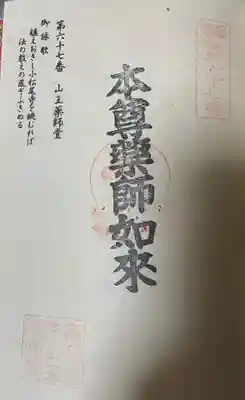 第六十七番　山王薬師堂
御詠歌
植えおきし小松尾寺を眺むれば
法の教えの風ぞふきぬる
本尊薬師如來